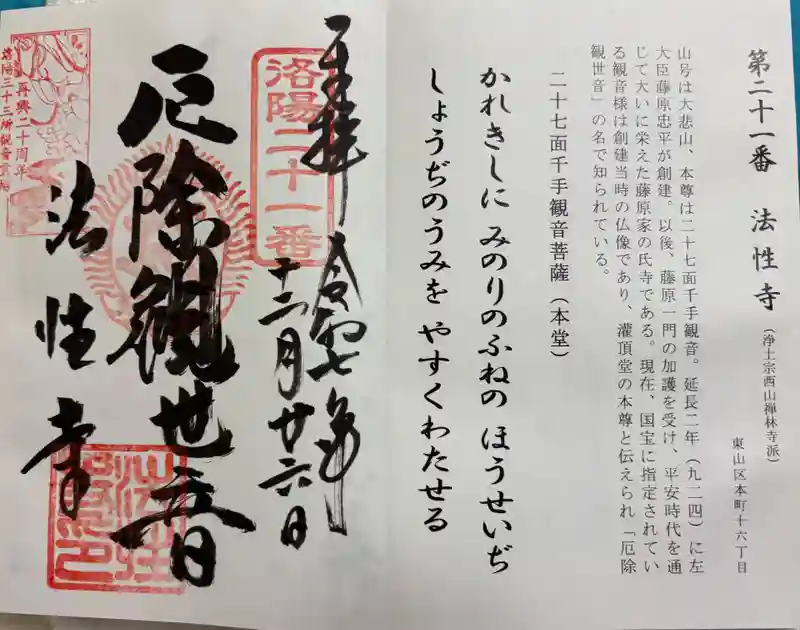 第二十一番 法性寺(浄土宗西山禅林寺派)
東山区本町十六丁目
山号は大悲山、本尊は二十七面千手観音。延長二年(九二四)に左
大臣藤原忠平が創建。以後、藤原一門の加護を受け、平安時代を通
じて大いに栄えた藤原家の氏寺である。現在、国宝に指定されてい
る観音様は創建当時の仏像であり、灌頂堂の本尊と伝えられ「厄除
観世音」の名で知られている。
二十七面千手観音菩薩(本堂)
かれきしに みのりのふねの ほうせいぢ
しょうぢのうみを やすくわたせる
奉拝 令和七年
十二月廿六日
洛陽二十一番
厄除観世音
法性寺
再興二十周年
洛陽三十三所観音霊場